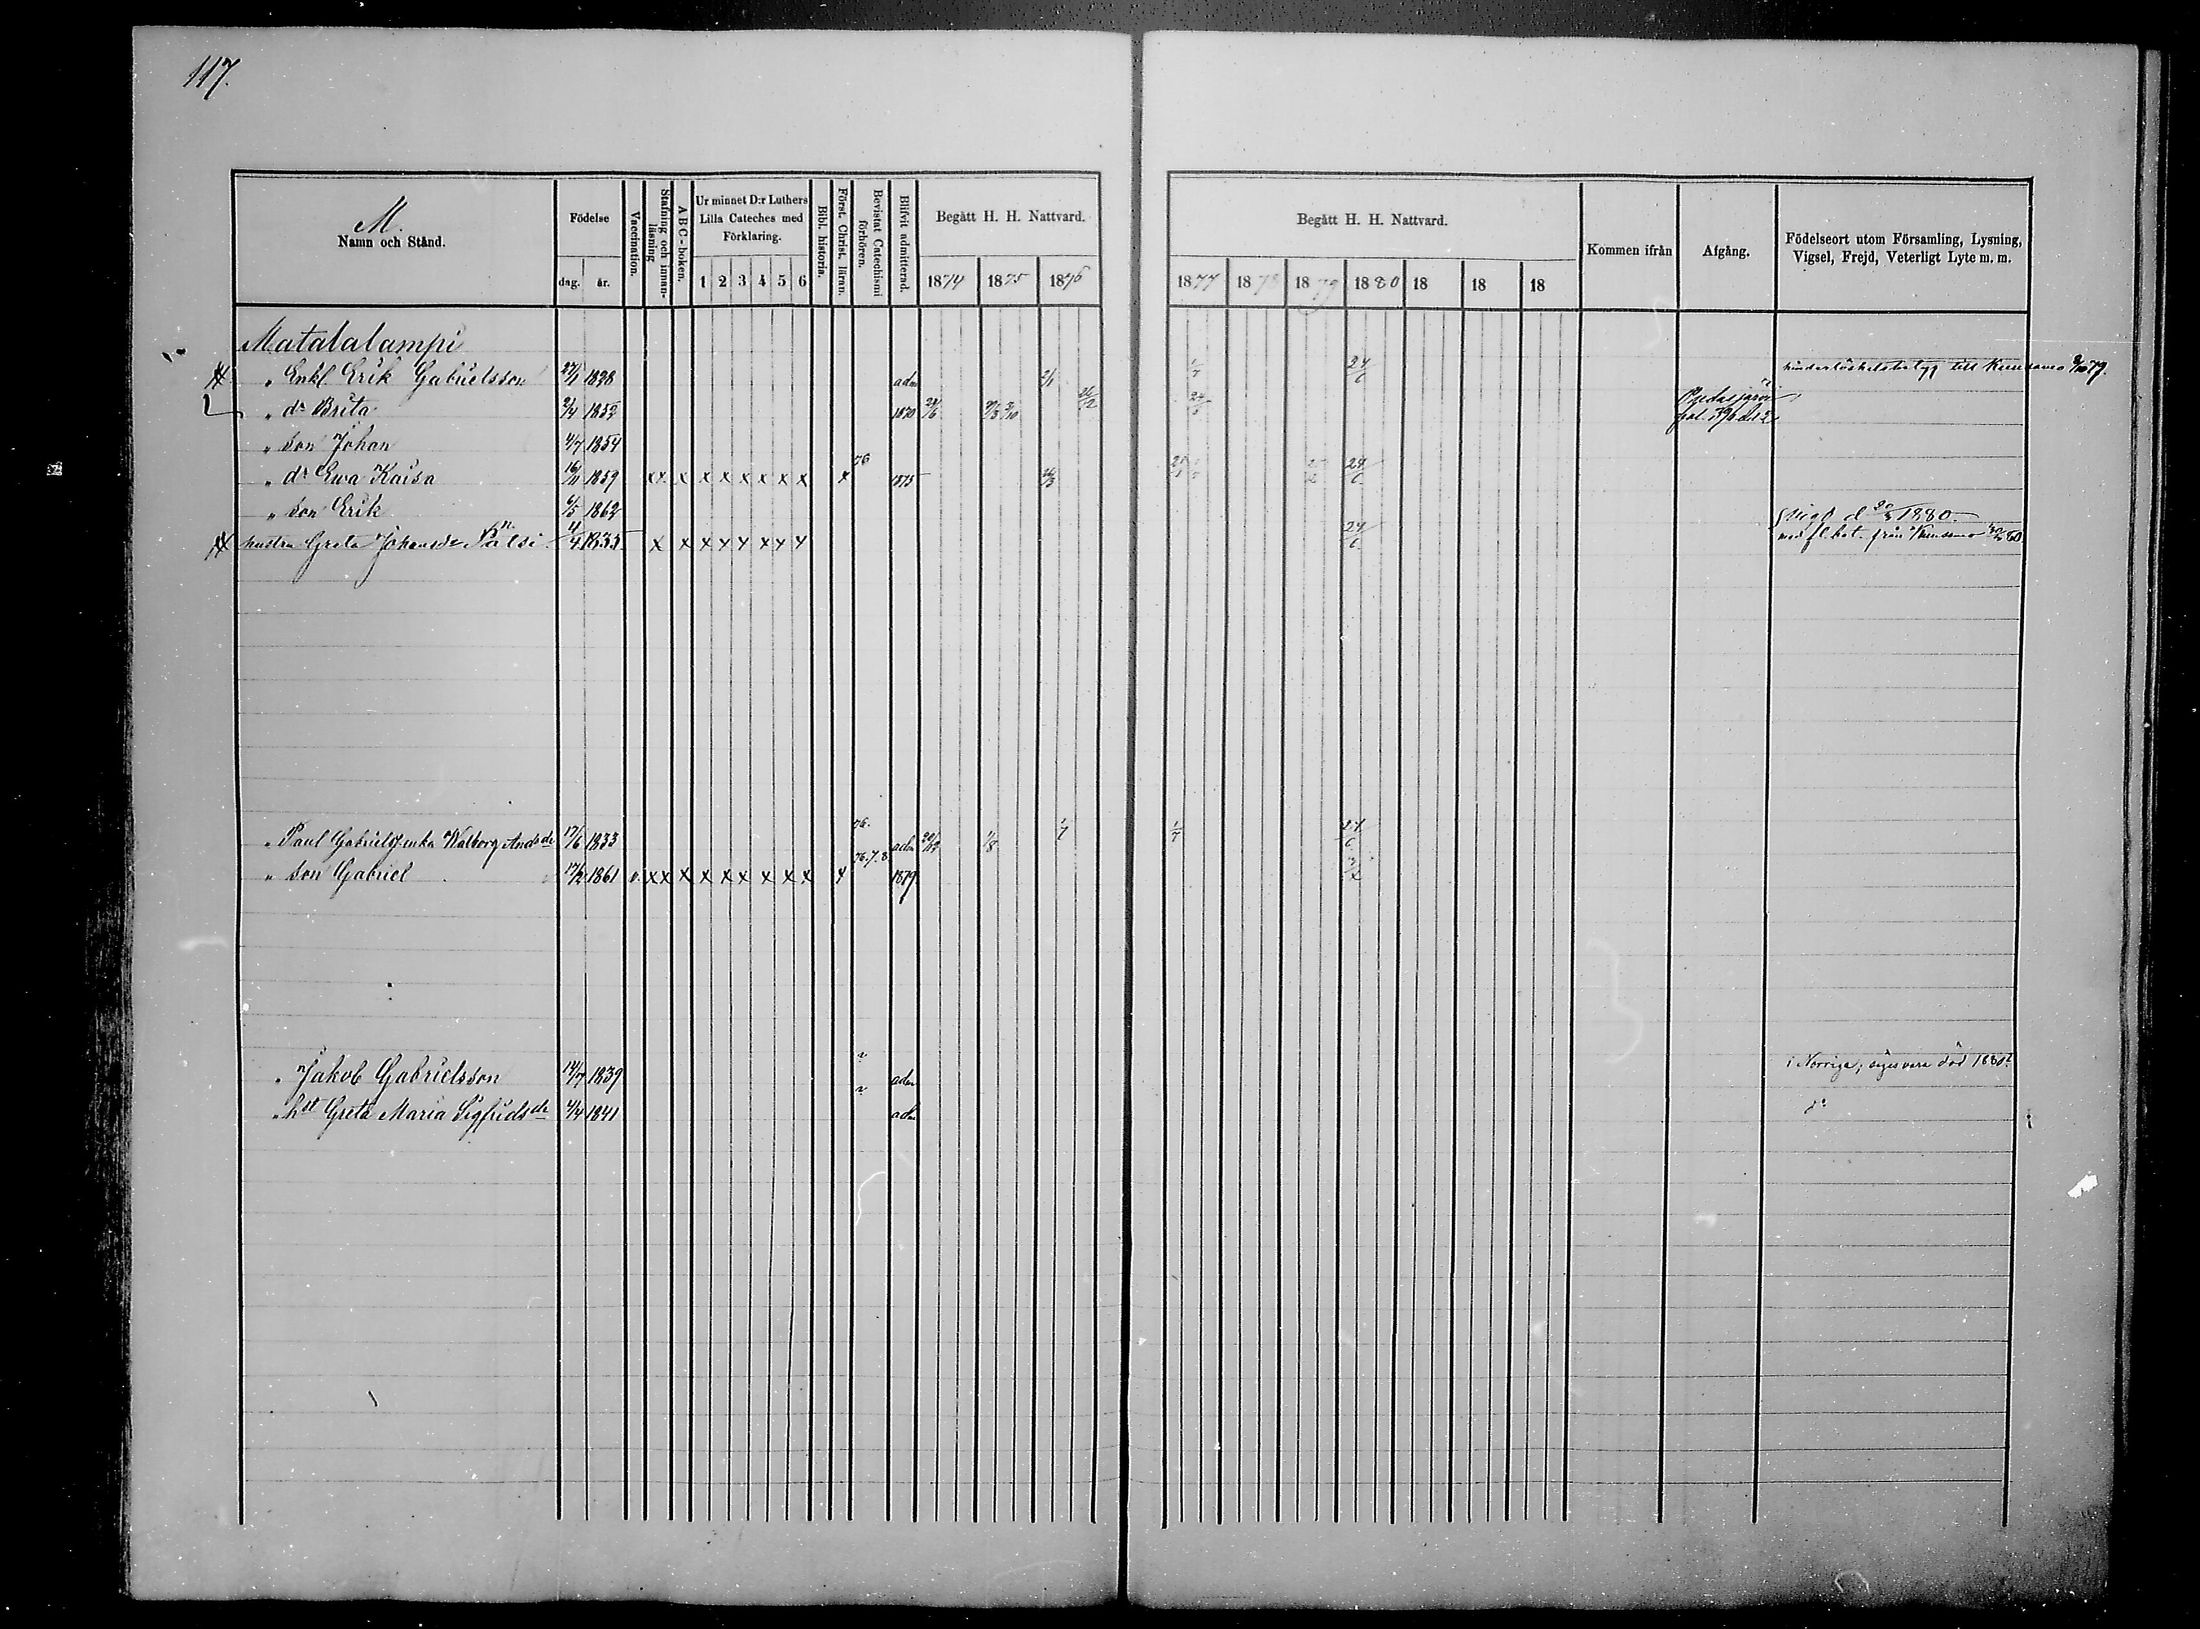 117.
M.
Namn och Stånd.
Födelse
dag. år.
Vaccination.
Stafning och innanläsning
A B C-boken.
Ur minnet D:r Luthers Lilla Cateches med Förklaring.
1 2 3 4 5 6
Bibl. historia.
Först. Christ. läran.
Bevistat Catechismi förhören.
Blifvit admitterad.
Begått H. H. Nattvard.
1874 1875 1876
Begått H. H. Nattvard.
1877 1878 1879 1880 18 18 18
Kommen ifrån
Afgång.
Födelseort utom Församling, Lysning, Vigsel, Frejd, Veterligt Lyte m. m.
Matalalampi
" Enkl. Erik Gabrielsson 27/1 1828 adm 2/1 1/7 24/6 hinderlöshetsbetyg till Kuusamo 79.
" dr Brita 2/4 1852 1870 24/6 26/12 24/5 Pudasjärvi
" son Johan 4/7 1854
" dr Ewa Kaisa 16/11 1859 x x x x x x x x x x 76 1875 24/6
" son Erik 6/5 1862
hustru Greta Johansdr Pätsi 4/4 1835 x x x x x x x x 24/6 Vigd d 20/3 1880. med fl. bet. från Kuusamo 80
" Paul Gabrielss enka Walborg Andsdr 17/6 1833 76. adm 1/8 1/7 1/7 24/6
" son Gabriel 17/2 1861 v. x x x x x x x x x x 76.7.8. 1879
" Jakob Gabrielsson 1839 adm i Norrige, säges vara död 1880?
" hst Greta Maria Sigfridsdr 4/4 1841 adm do